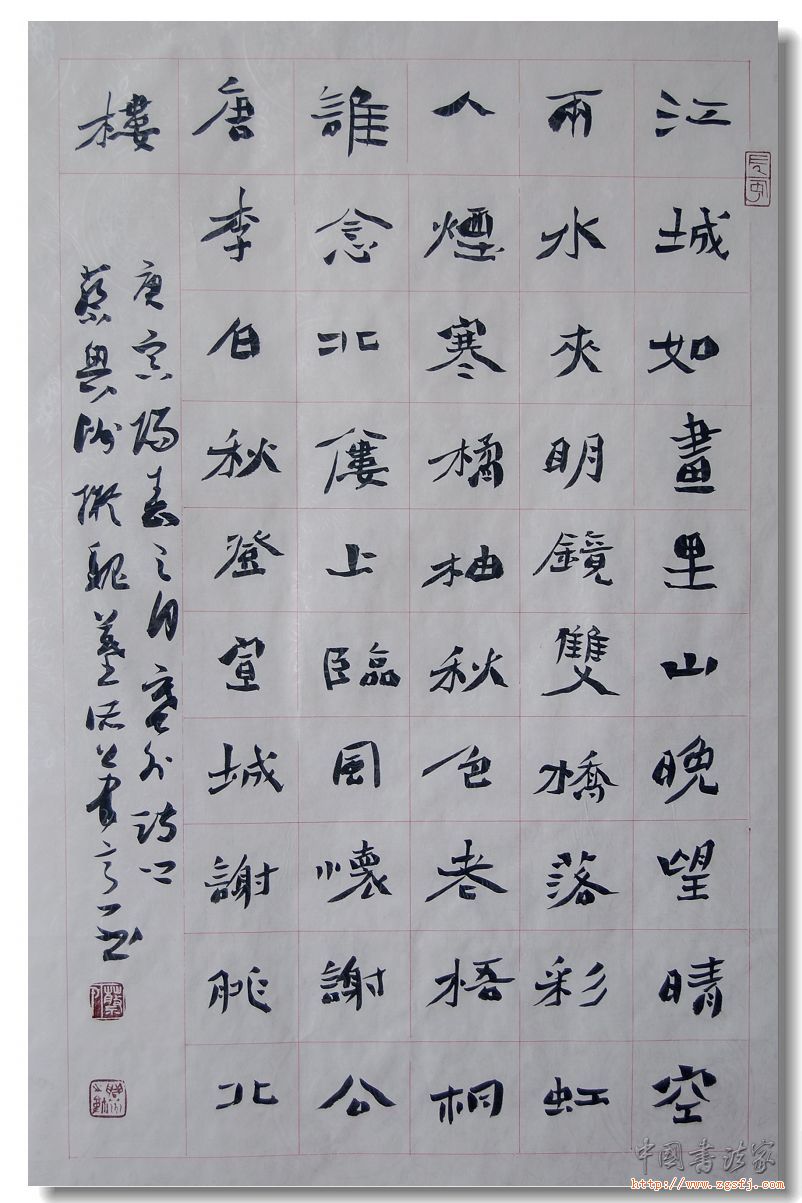 江城如畫里山晚望晴空
兩水夾明鏡雙橋落彩虹
人煙寒橘柚秋色老梧桐
誰念北樓上臨風懷謝公
唐李白秋登宣城謝朓北
樓
庚寅陽春之月
中国书法家
http://www.zgsfj.com